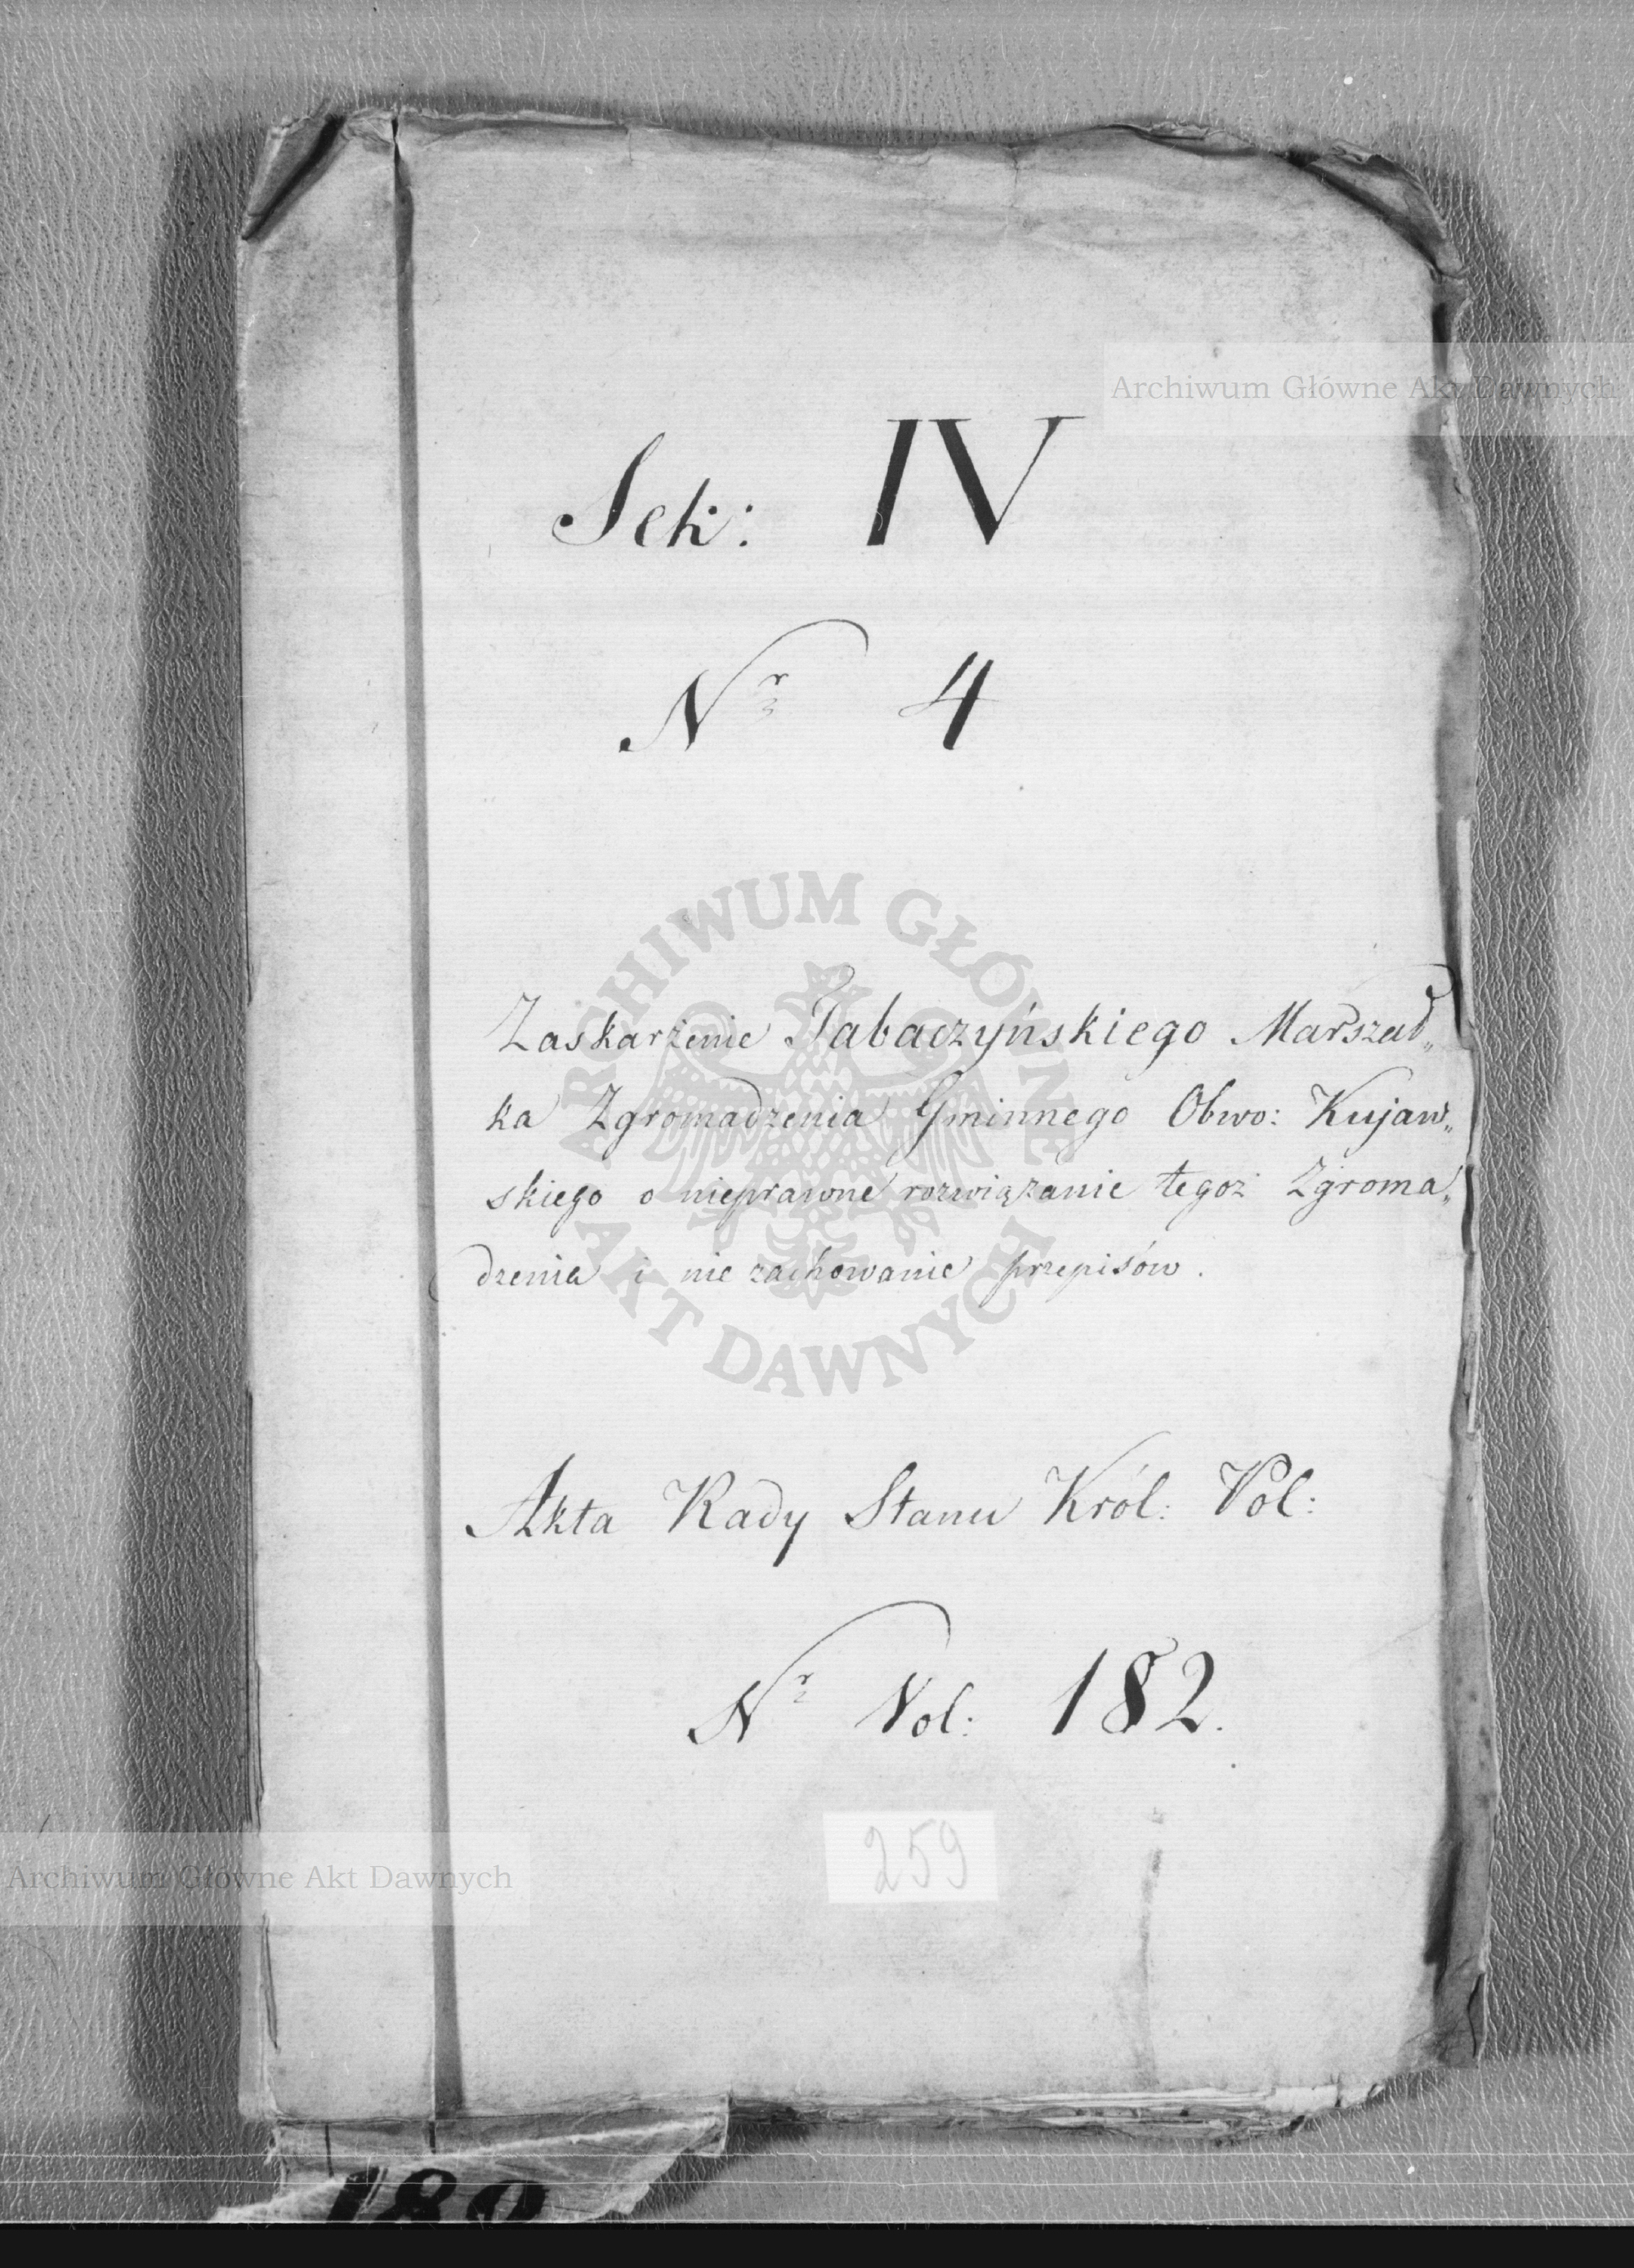 Archiwum Główne Akt Dawnych
Sek: IV
Nr 4
ARCHIWUM GŁÓWNE AKT DAWNYCH
Zaskarżenie Tabaczyńskiego Marszał„
ka Zgromadzenia Gminnego Obwo: Kujaw„
skiego o nieprawne rozwiązanie tegoż Zgroma„
dzenia i nie zachowanie przepisów.
Akta Rady Stanu Król: Pol:
Nr Vol: 182.
259
Archiwum Główne Akt Dawnych
182